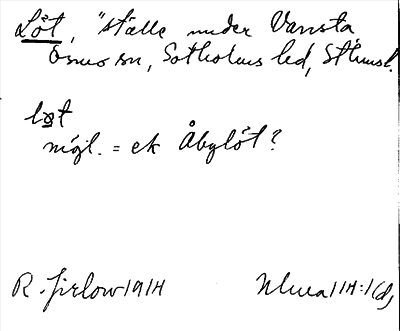 Löt, "ställe under Vansta,
Ösmo sn, Sotholms hd, Sthmsl.
løt
möjl. = ek Åbylöt?
R. Jirlow 1914